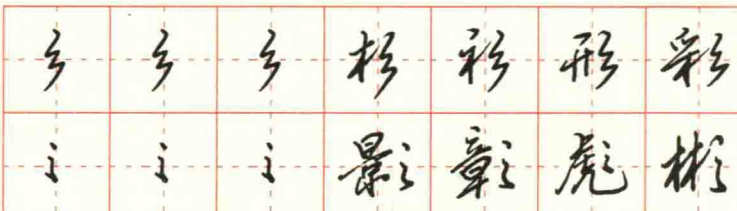 彡彡彡杉衫形彩
彡彡彡影彰彪彬